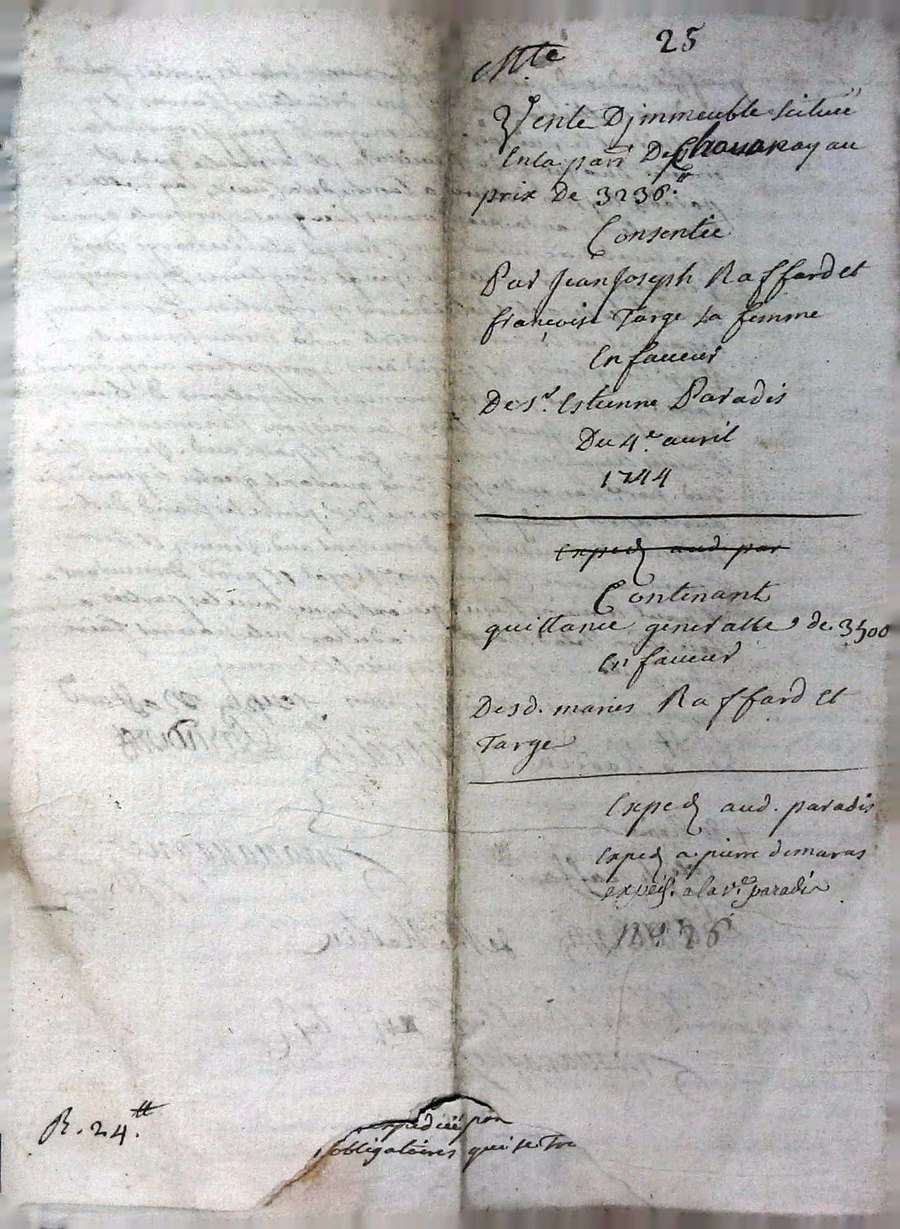 25
Mte
Vente D'immeuble scituée
En la parr De Chavanay au
prix de 3236.tt
Consentie
Par Jean Joseph Raffard et
françoise Targe sa femme
En faveur
De sr. Estienne Paradis
Du 4e. avril
1744
Exped aud. par
Contenant
quittance generalle de 3500
En faveur
Desd. maries Raffard et
Targe
Exped aud. paradis
Exped a pierre demaras
exped. a la ve. paradis
25
R. 24.tt
expediée par
obligatoires qui se